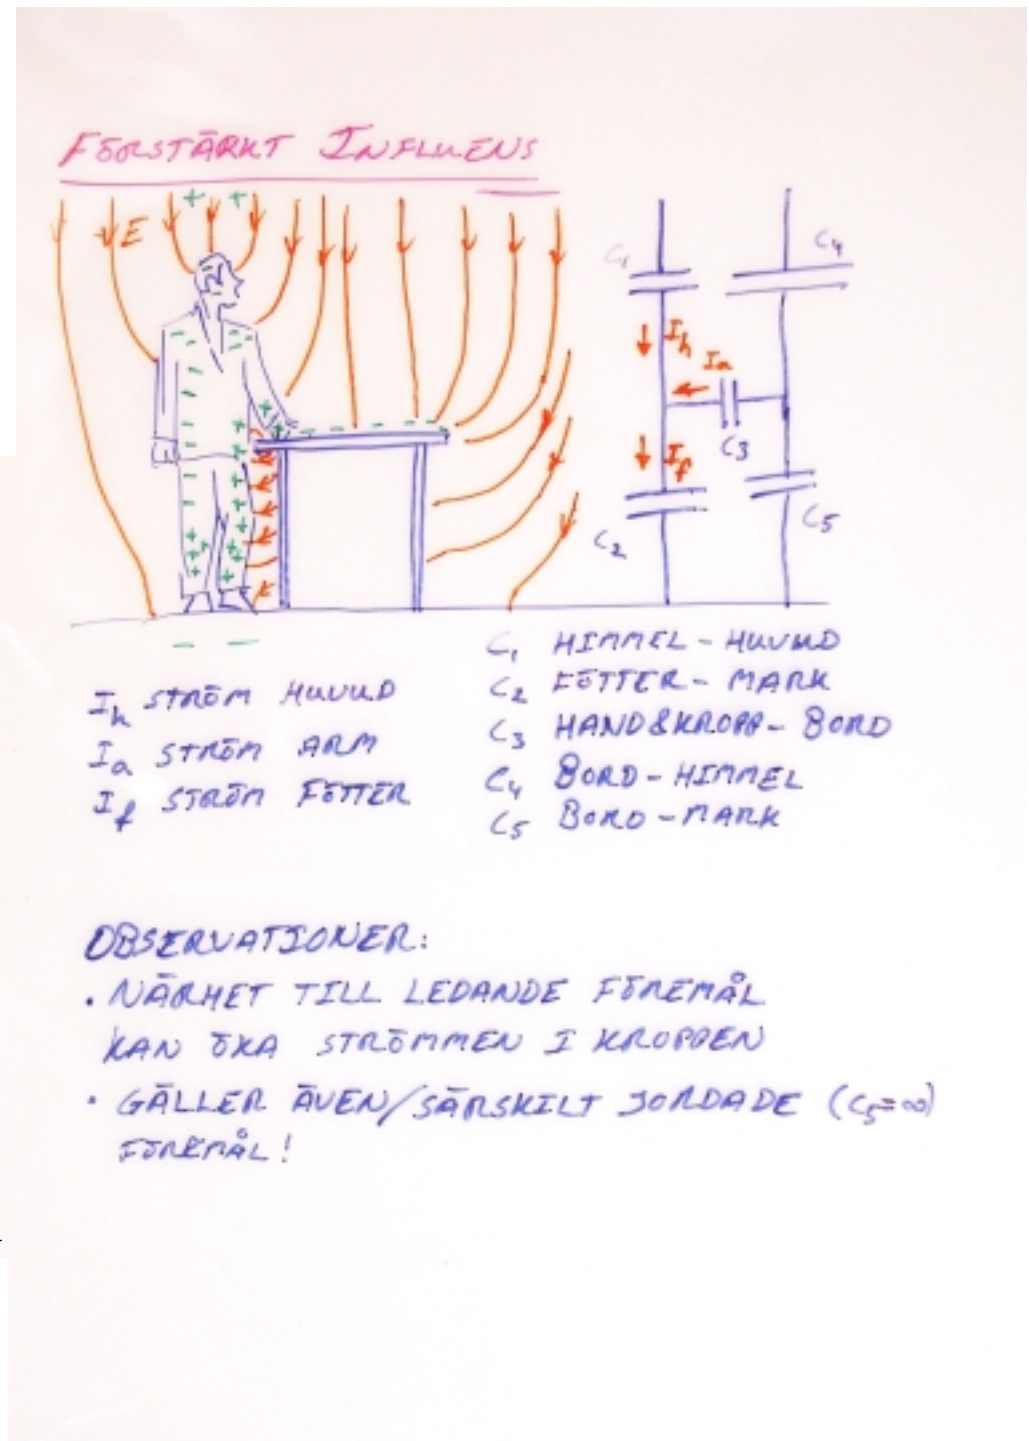 FÖRSTÄRKT INFLUENS
+ +
E
C₁
C₄
I_h
I_a
C₃
I_f
C₂
C₅
I_h STRÖM HUVUD
I_a STRÖM ARM
I_f STRÖM FÖTTER
C₁ HIMMEL-HUVUD
C₂ FÖTTER-MARK
C₃ HAND&KROPP-BORD
C₄ BORD-HIMMEL
C₅ BORD-MARK
OBSERVATIONER:
• NÄRHET TILL LEDANDE FÖREMÅL
KAN ÖKA STRÖMMEN I KROPPEN
• GÄLLER ÄVEN/SÄRSKILT JORDADE (C₅=∞)
FÖREMÅL!